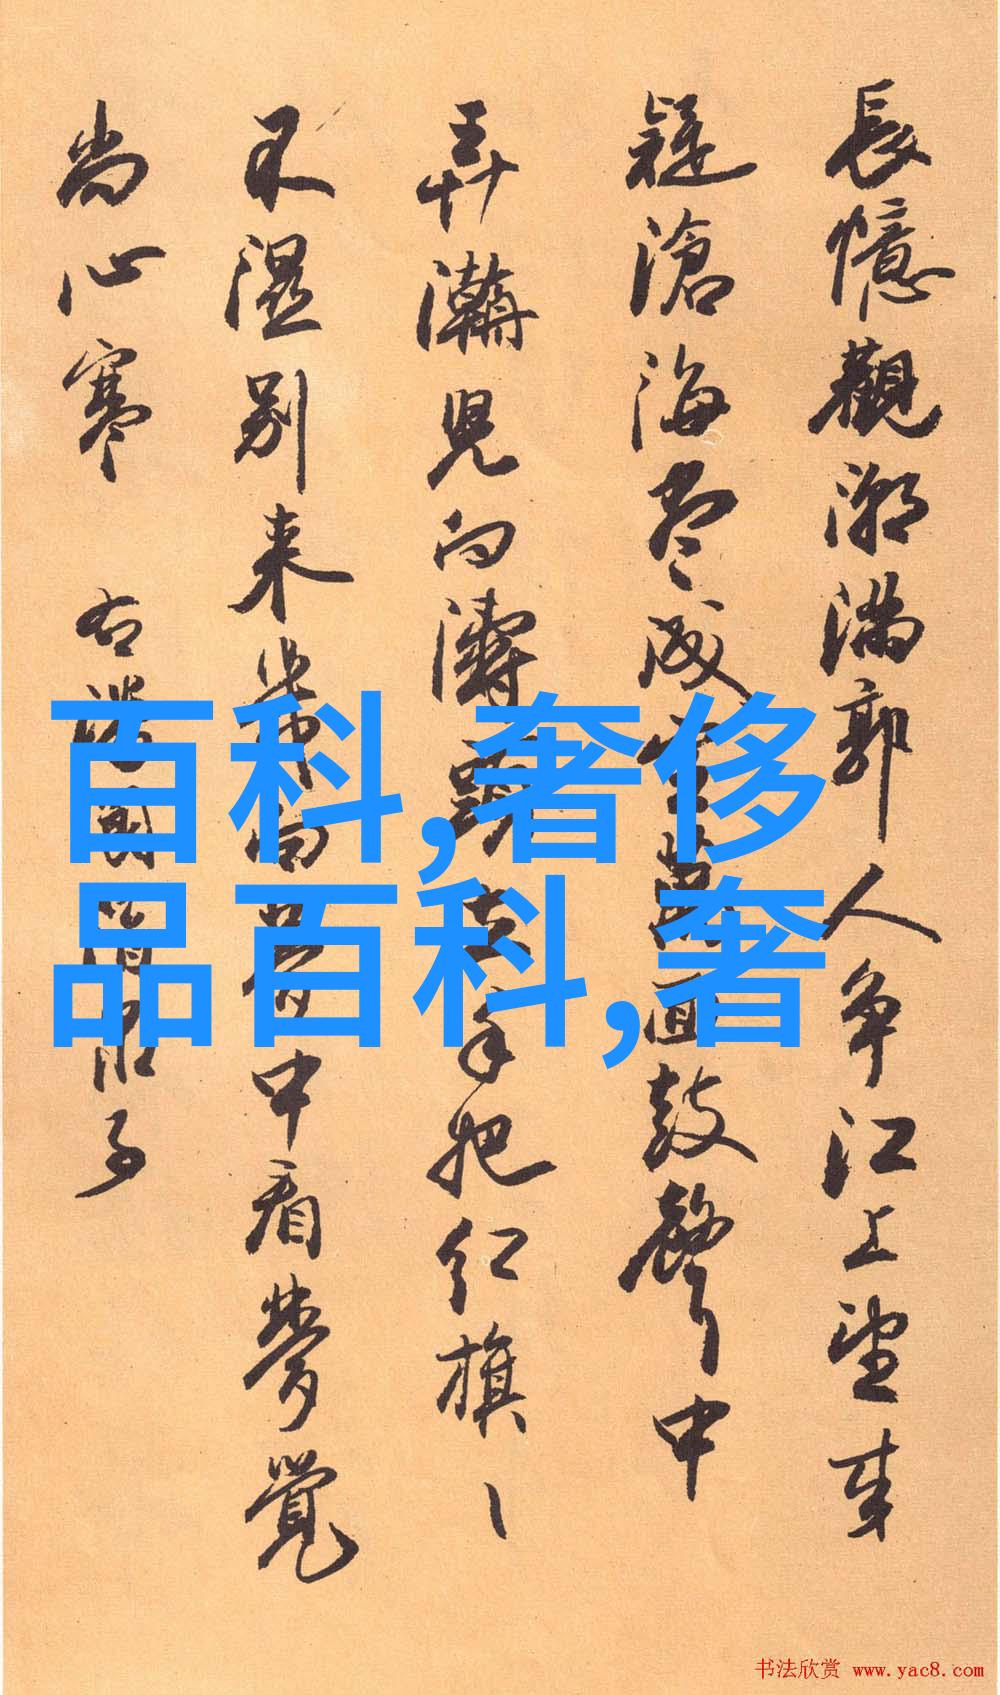 長憶觀潮滿郭人争江上望来
疑滄海尽成空萬面鼓聲中
弄潮児向濤頭立手把红旗ヽ
不湿别来幾向夢中看夢覺
尚心寒 右潘閬酒泉子
百科,奢侈
品百科,奢
书法欣赏 www.yac8.com